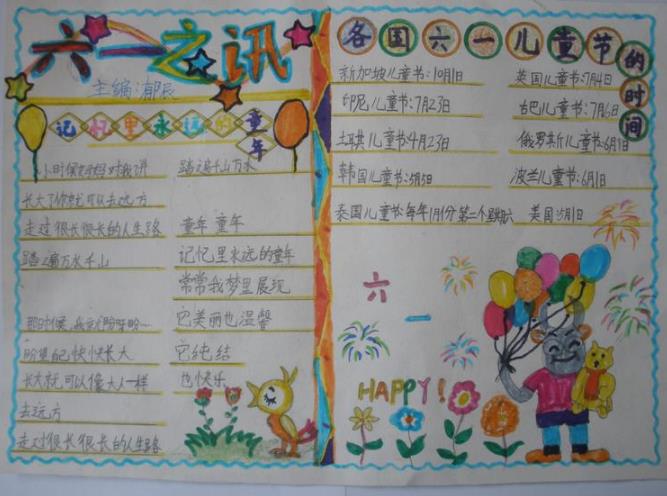 六一之讯
主编:郁辰
记忆里永远的童年
小时候妈妈对我讲
长大了你就可以去远方
走过很长很长的人生路
踏遍万水千山
那时候,我就盼呀盼~
盼望自己快快长大
长大就可以像大人一样
去远方
走过很长很长的人生路
踏遍千山万水
童年 童年
记忆里永远的童年
常常我梦里展现
它美丽也温馨
它纯结
也快乐
各国六一儿童节的时间
新加坡儿童节:10月1日
英国儿童节:7月4日
印尼儿童节:7月23日
古巴儿童节:7月6日
土耳其儿童节:4月23日
俄罗斯儿童节:6月1日
韩国儿童节:5月5日
波兰儿童节:6月1日
泰国儿童节:每年1月份第二个星期六
美国:5月1日
六一
HAPPY!